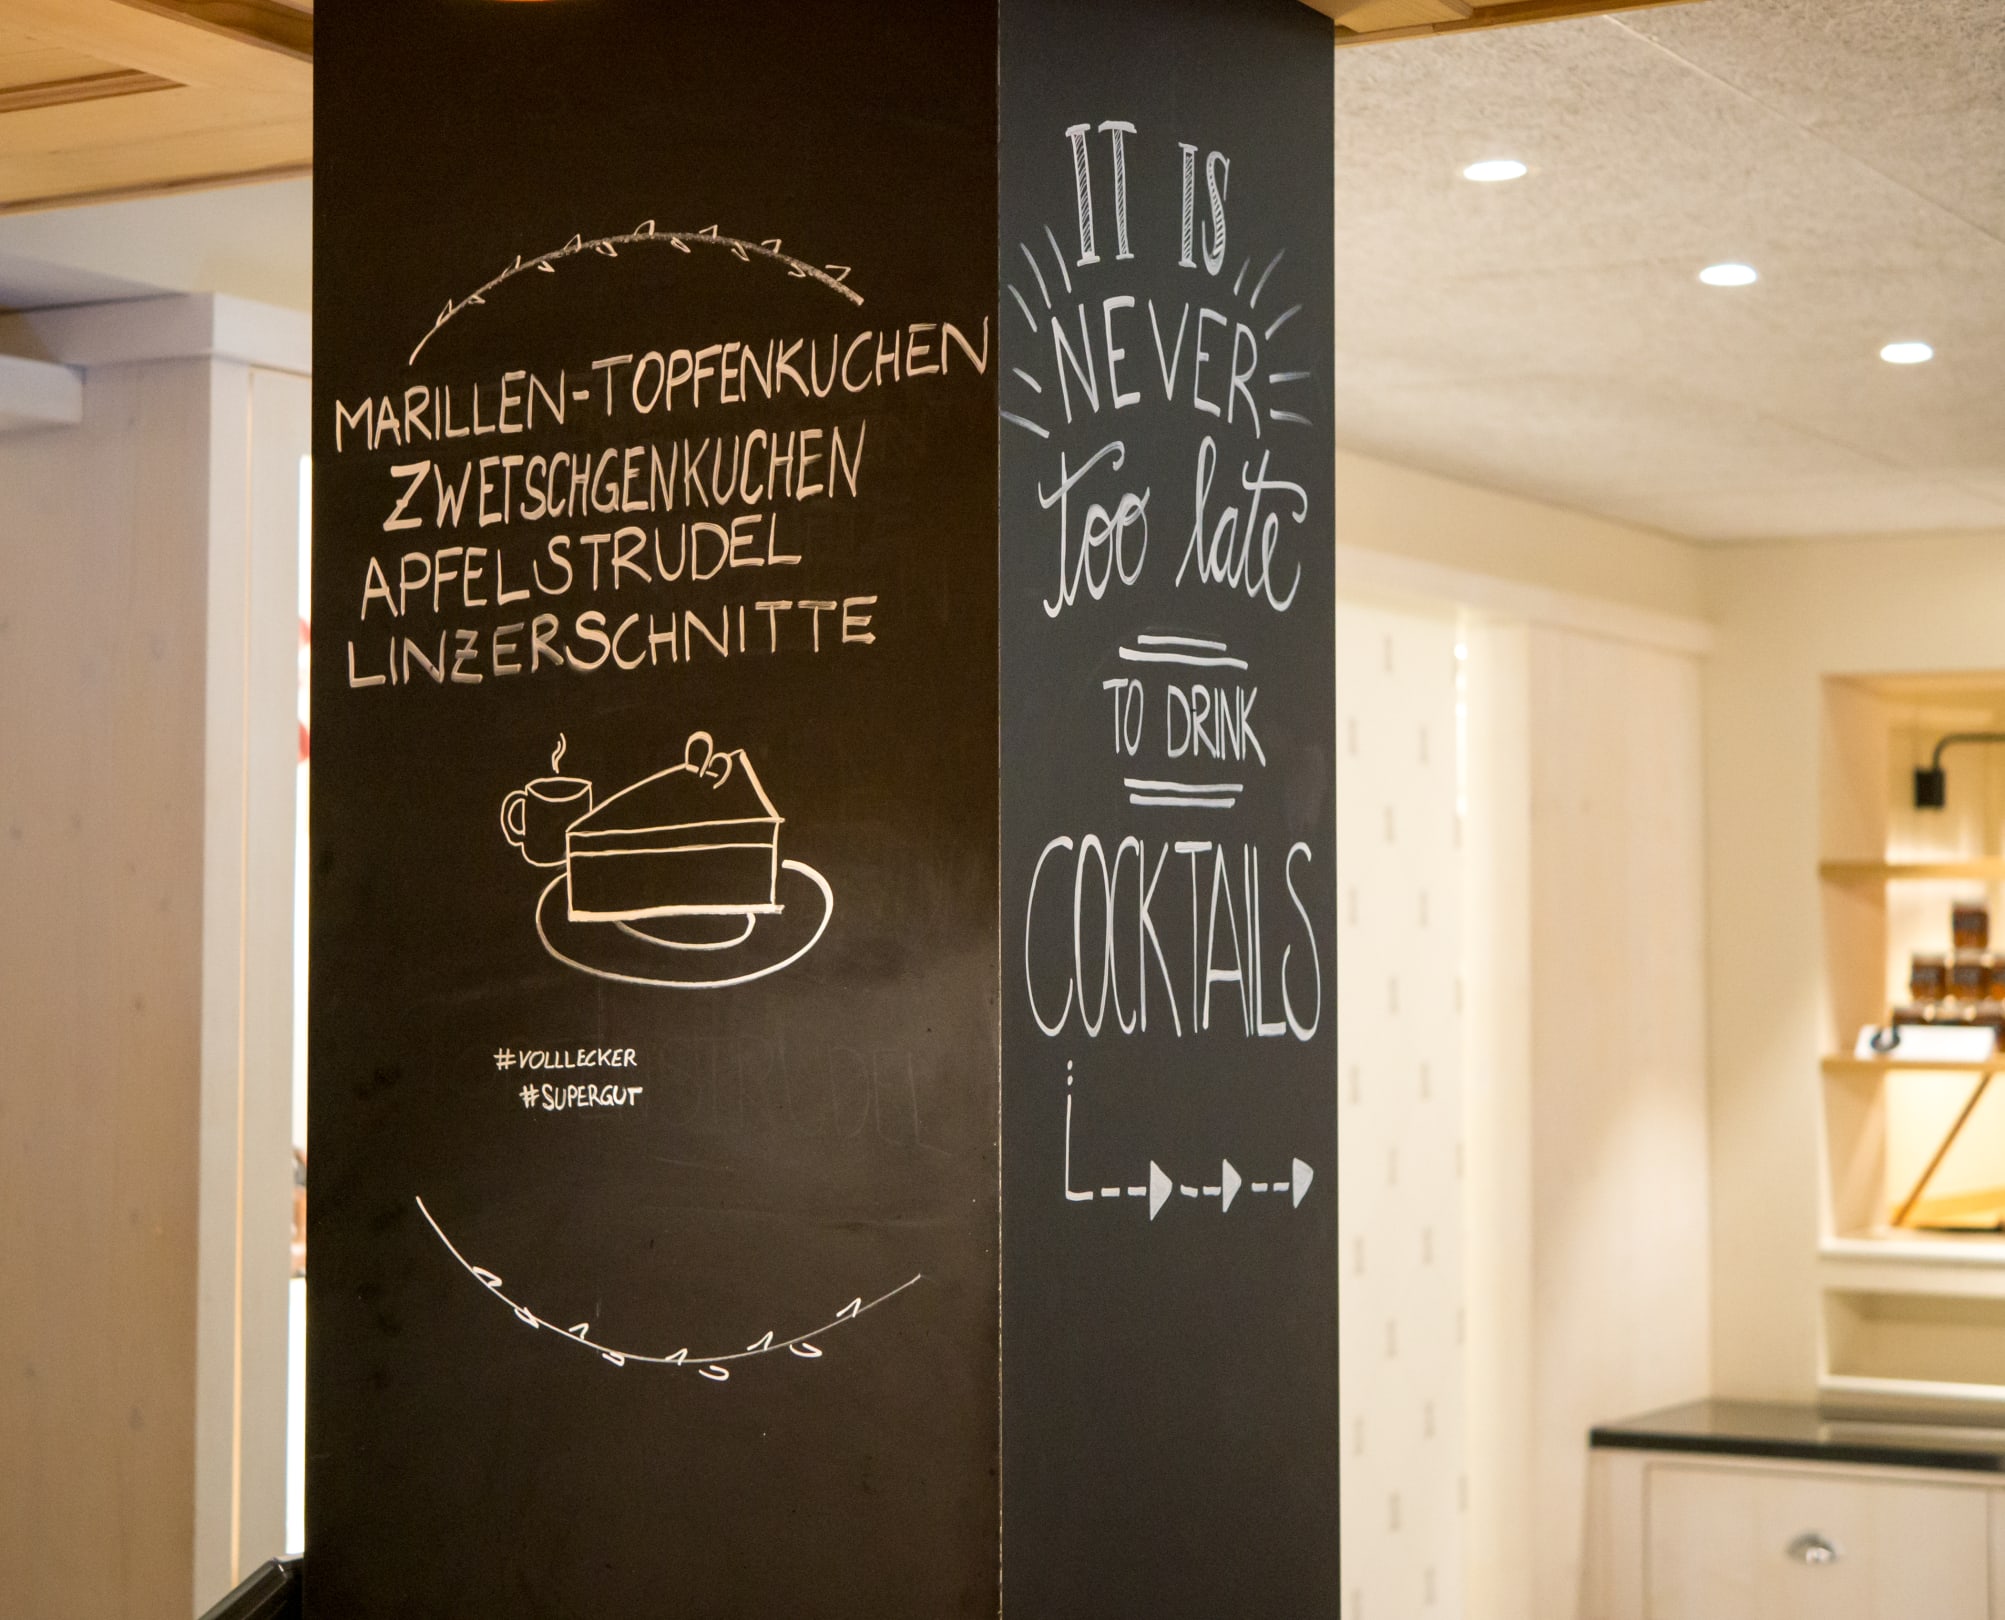 MARILLEN-TOPFENKUCHEN
ZWETSCHGENKUCHEN
APFELSTRUDEL
LINZERSCHNITTE
#VOLLLECKER
#SUPERGUT
STRUDEL
IT IS
NEVER
too late
TO DRINK
COCKTAILS